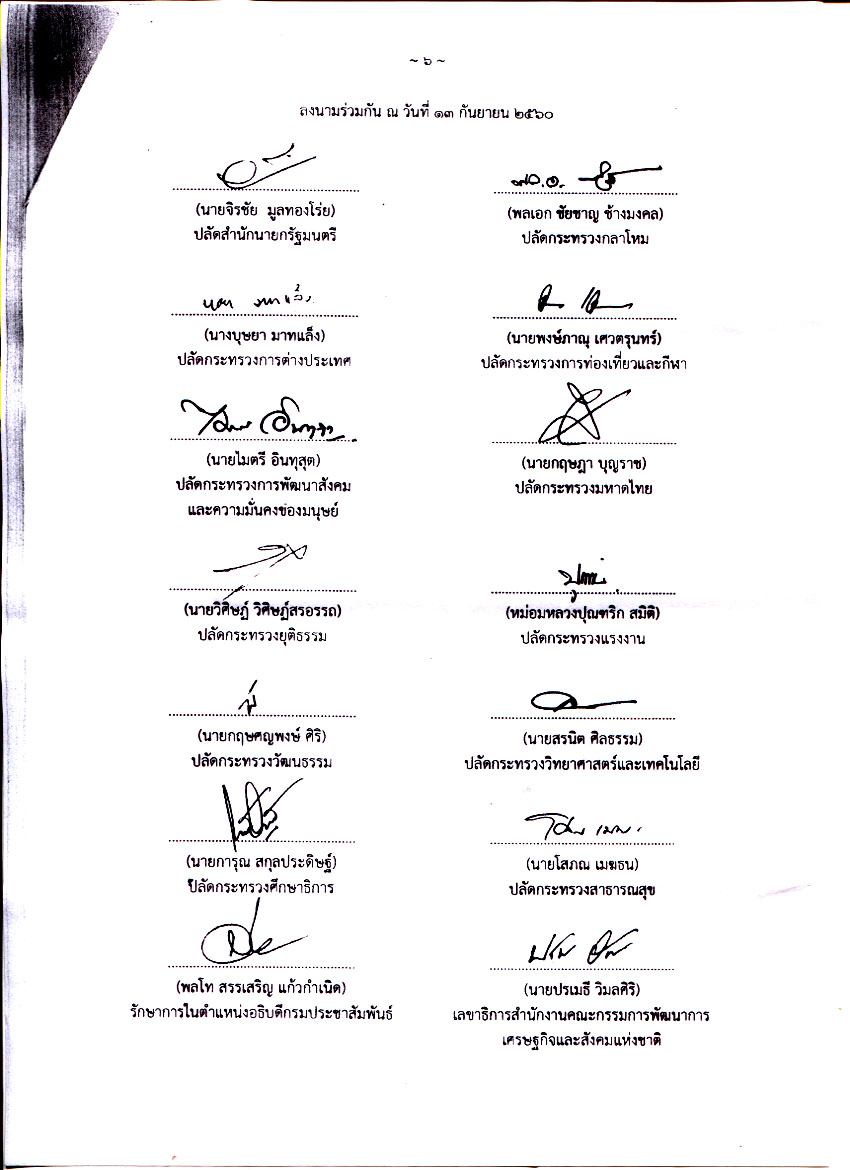 ~ ๖ ~
ลงนามร่วมกัน ณ วันที่ ๑๓ กันยายน ๒๕๖๐
(นายจิรชัย มูลทองโร่ย)
ปลัดสำนักนายกรัฐมนตรี
พล.อ.
(พลเอก ชัยชาญ ช้างมงคล)
ปลัดกระทรวงกลาโหม
(นางบุษยา มาทแล็ง)
ปลัดกระทรวงการต่างประเทศ
(นายพงษ์ภาณุ เศวตรุนทร์)
ปลัดกระทรวงการท่องเที่ยวและกีฬา
(นายไมตรี อินทุสุต)
ปลัดกระทรวงการพัฒนาสังคม
และความมั่นคงของมนุษย์
(นายกฤษฎา บุญราช)
ปลัดกระทรวงมหาดไทย
(นายวิศิษฏ์ วิศิษฏ์สรอรรถ)
ปลัดกระทรวงยุติธรรม
(หม่อมหลวงปุณฑริก สมิติ)
ปลัดกระทรวงแรงงาน
(นายกฤษศญพงษ์ ศิริ)
ปลัดกระทรวงวัฒนธรรม
(นายสรนิต ศิลธรรม)
ปลัดกระทรวงวิทยาศาสตร์และเทคโนโลยี
(นายการุณ สกุลประดิษฐ์)
ปลัดกระทรวงศึกษาธิการ
(นายโสภณ เมฆธน)
ปลัดกระทรวงสาธารณสุข
(พลโท สรรเสริญ แก้วกำเนิด)
รักษาการในตำแหน่งอธิบดีกรมประชาสัมพันธ์
(นายปรเมธี วิมลศิริ)
เลขาธิการสำนักงานคณะกรรมการพัฒนาการ
เศรษฐกิจและสังคมแห่งชาติ